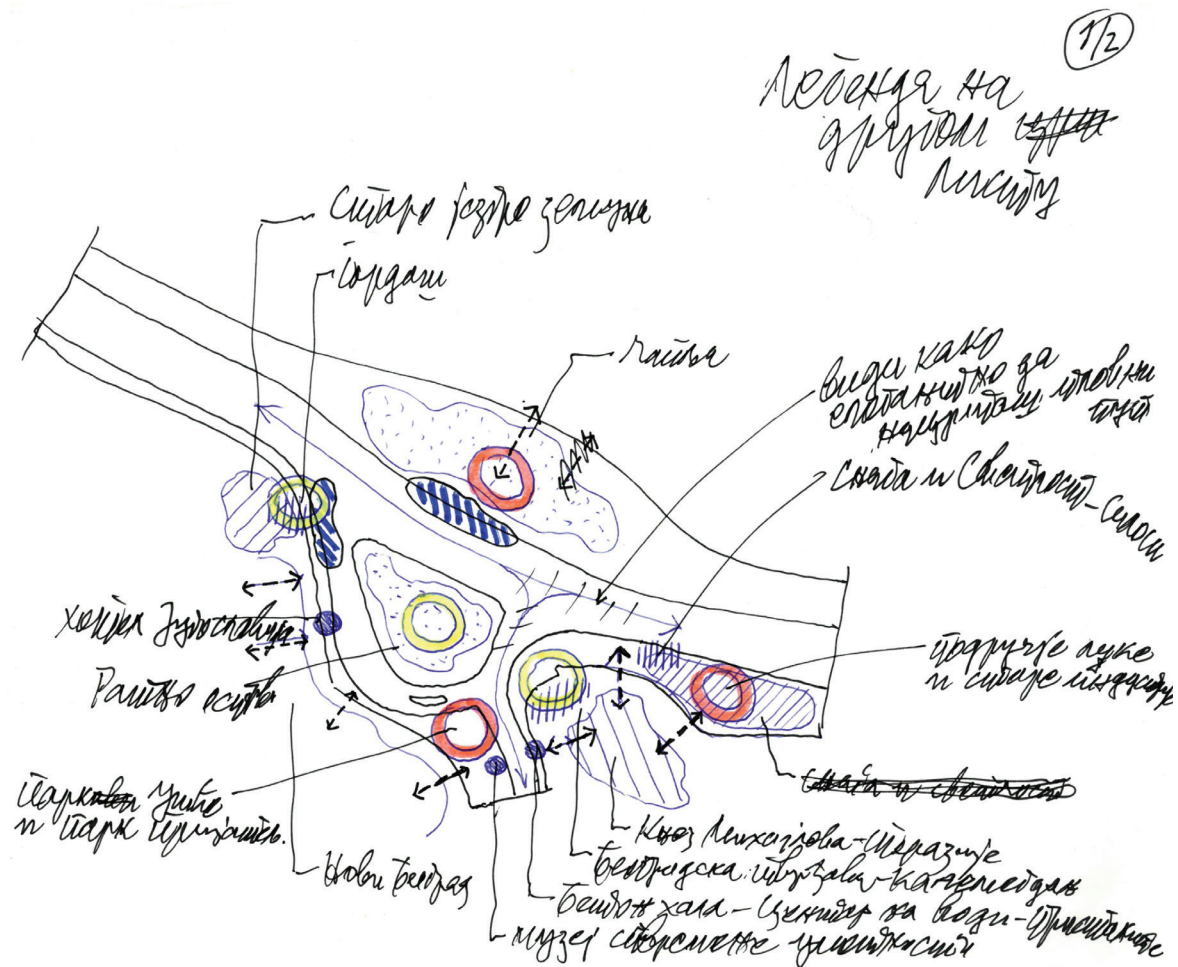 1/2
Легенда на
другом
листу
Старо језгро земуна
Гардош
Чапља
види како
спонтанитно да
пловни
пут
Снага и Светлост-Силоси
хотел Југославија
Ратно острво
подручје луке
и старе индустрије
Парк Ушће
и парк пријатељ.
Снага и светлост
Кнез Михаилова-Теразије
Нови Београд
Београдска тврђава-Калемегдан
Бетон хала-Центар на води-Пристаниште
музеј савремене уметности